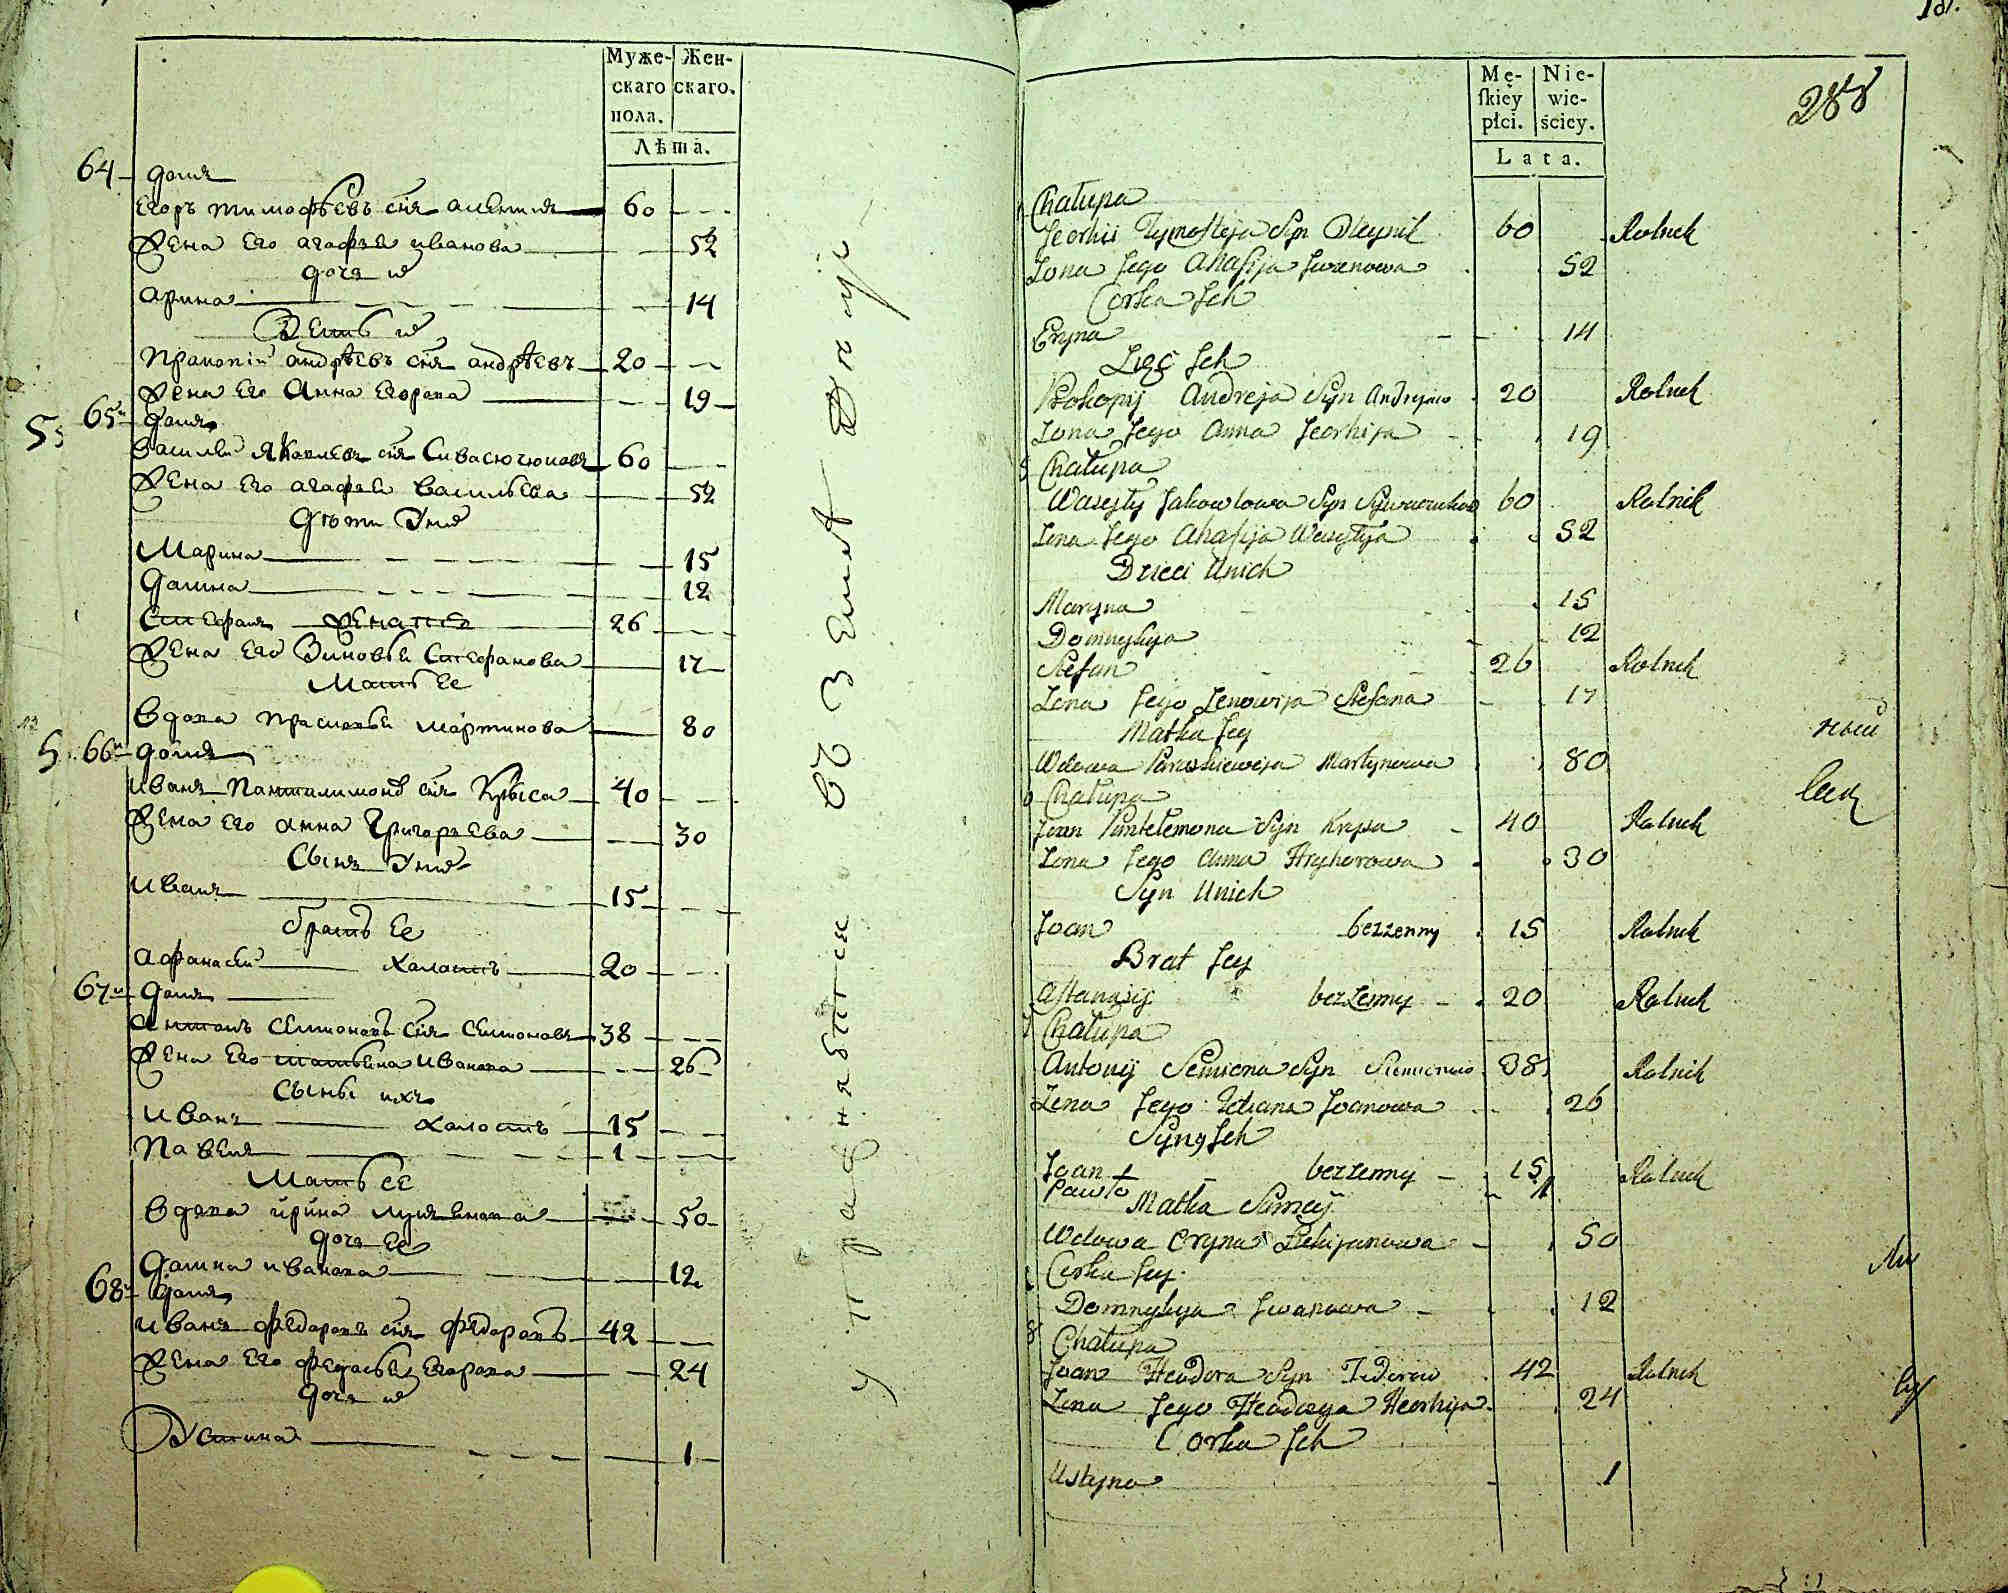 Муже-
скаго
пола.
Жен-
скаго.
Лѣта.
64 домъ
Егоръ тимофѣевъ снъ 60
Жена Его агафья иванова 52
дочь их
арина 14
Зеть их
Пракопiй андрѣевъ снъ андрѣевъ 20
Жена Его Анна Егорова 19
65й домъ
василей Яковлевъ снъ 60
Жена Его агафья васильева 52
дѣти Уних
Марина 15
домна 12
Стефанъ 26
Жена Его Зиновья Стефанова 17
Мать Ее
вдова прасковья мартинова 80
66й домъ
иванъ Пантилимоновъ снъ Крыса 40
Жена Его анна Григорьева 30
Сынъ Уних
иванъ 15
братъ Ее
афанасей халостъ 20
67й домъ
антонъ семионовъ снъ семионовъ 38
Жена Его татьяна иванова 26
Сыны ихъ
иванъ халостъ 15
Павелъ 1
Мать ее
вдова ирина 50
дочь Ее
домна иванова 12
68й домъ
иванъ федоровъ снъ федоровъ 42
Жена Его федосья Егорова 24
дочь их
Устина 1
упражняются въ Земле
288
Mę-
ſkiey
płci.
Nie-
wie-
ściey.
Lata.
Chatupa
Jeorhii Tymofteja Syn Oleynik 60 Rolnik
Zona Jego Ahafija Jwanowa 52
Corka Jch
Eryna 14
Zięć Jch
Prokopij Andreja Syn Andrejew 20 Rolnik
Zona Jego Anna Jeorhija 19
Chatupa
Wasyly Jakowlowa Syn 60 Rolnik
Zona Jego Ahafija Wasylija 52
Dzieci Unich
Maryna 15
Domnykija 12
Stefan 26 Rolnik
Zona Jego Zenowija Stefana 17
Matka Jey
Wdowa Paraskiewija Martynowa 80
Chatupa
Joan Pantelemona Syn Krysa 40 Rolnik
Zona Jego Anna Hryhorowa 30
Syn Unich
Joan bezzenny 15 Rolnik
Brat Jey
Aftanasij bezzenny 20 Rolnik
Chatupa
Antonij Semiona Syn Siemionow 38 Rolnik
Zona Jego Tetiana Joanowa 26
Syny Jch
Joan bezzenny 15 Rolnik
Pawło 1
Matka
Wdowa Eryna 50
Corka Jey
Domnykija Jwanowa 12
Chatupa
Joan Theodora Syn Fedorow 42 Rolnik
Zona Jego Theodosya Heorhija 24
Corka Jch
Ustyna 1